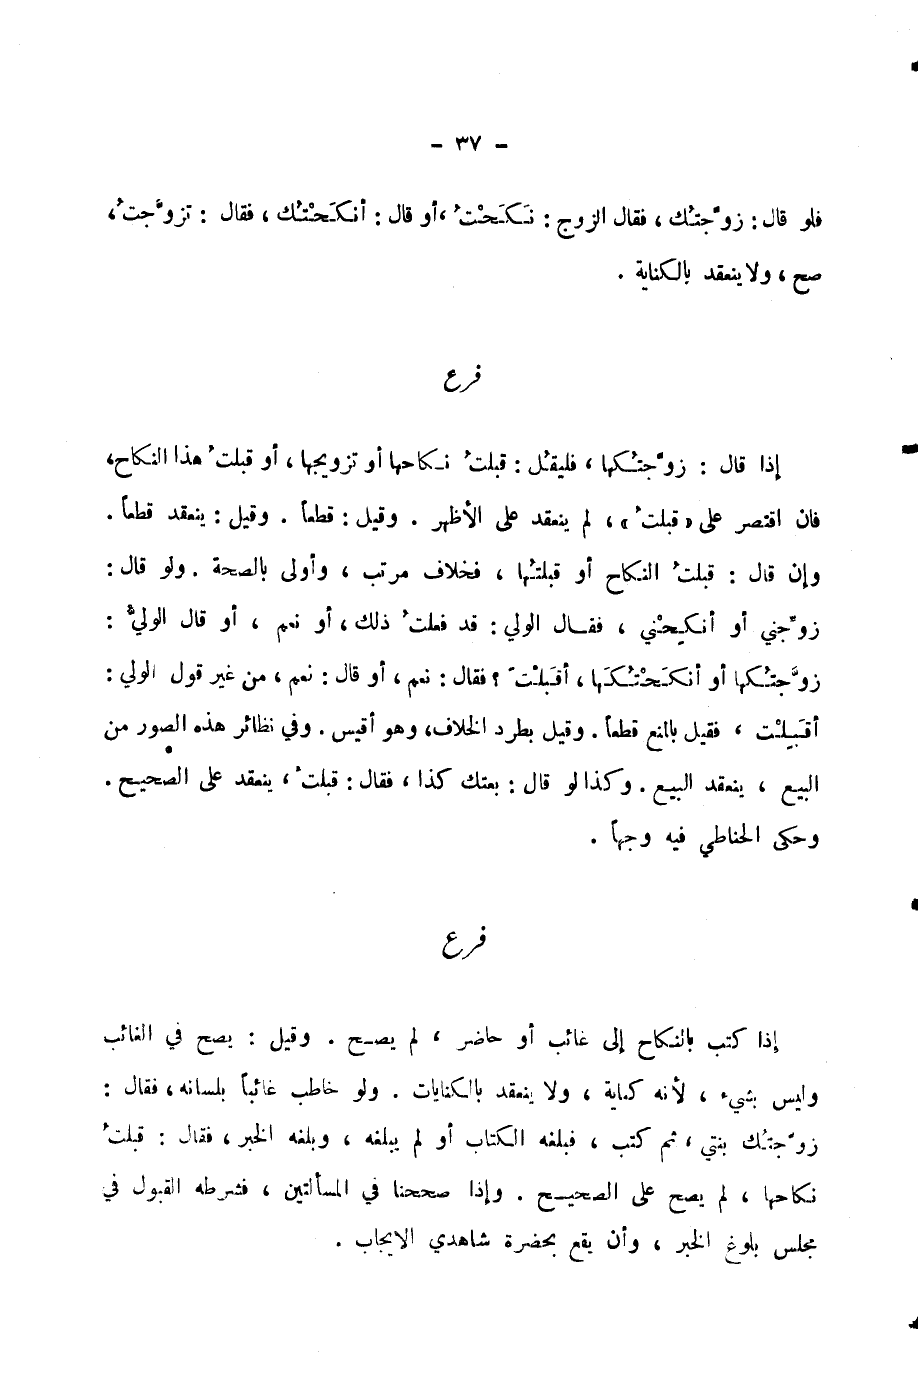 - ٣٧ -
فلو قال : زوَّجتُك ، فقال الزوج : نَكَحْتُ ، أو قال : أنكَحْتُك ، فقال : تزوَّجتُ ،
صح ، ولا ينعقد بالكناية .
فرع
إذا قال : زوَّجتُكها ، فليقُل : قبلتُ نكاحها أو تزويجها ، أو قبلتُ هذا النكاح ،
فان اقتصر على « قبلتُ » ، لم ينعقد على الأظهر . وقيل : قطعاً . وقيل : ينعقد قطعاً .
وإن قال : قبلتُ النكاح أو قبلتُها ، فخلاف مرتب ، وأولى بالصحة . ولو قال :
زوِّجني أو أنكِحْني ، فقال الولي : قد فعلتُ ذلك ، أو نعم ، أو قال الوليُّ :
زوَّجتُكها أو أنكَحْتُكَها ، أقبَلْتَ ؟ فقال : نعم ، أو قال : نعم ، من غير قول الولي :
أقَبِلْت ، فقيل بالمنع قطعاً . وقيل بطرد الخلاف ، وهو أقيس . وفي نظائر هذه الصور من
البيع ، ينعقد البيع . وكذا لو قال : بعتك كذا ، فقال : قبلتُ ، ينعقد على الصحيح .
وحكى الحناطي فيه وجهاً .
فرع
إذا كتب بالنكاح إلى غائب أو حاضر ، لم يصح . وقيل : يصح في الغائب
وليس بشيء ، لأنه كناية ، ولا ينعقد بالكنايات . ولو خاطب غائباً بلسانه ، فقال :
زوَّجتُك بنتي ، ثم كتب ، فبلغه الكتاب أو لم يبلغه ، وبلغه الخبر ، فقال : قبلتُ
نكاحها ، لم يصح على الصحيح . وإذا صححنا في المسألتين ، فشرطه القبول في
مجلس بلوغ الخبر ، وأن يقع بحضرة شاهدي الايجاب .